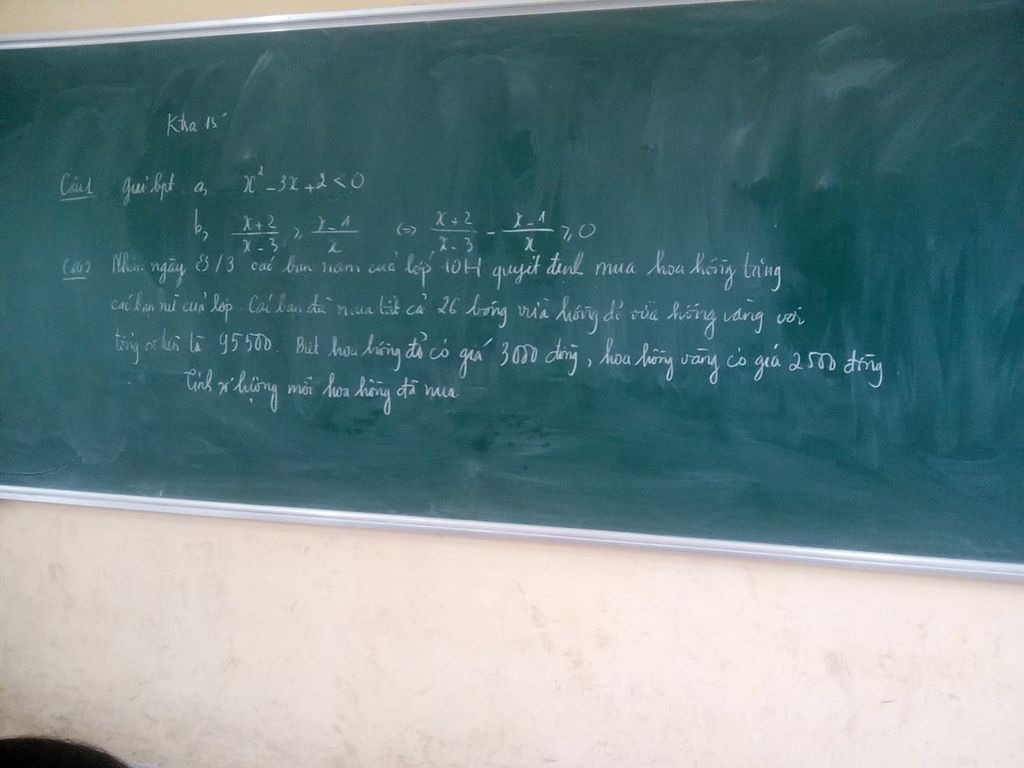 Kta 15'
Câu1 Giải bpt a, x² - 3x + 2 < 0
b, \frac{x+2}{x-3} ≥ \frac{x-1}{x} (=) \frac{x+2}{x-3} - \frac{x-1}{x} ≥ 0
Câu2 Nhân ngày 8/3 các bạn nam của lớp 10H quyết định mua hoa hồng tặng
các bạn nữ của lớp. Các bạn đã mua tất cả 26 bông vừa hồng đỏ vừa hồng vàng với
tổng số tiền là 95500. Biết hoa hồng đỏ có giá 3000 đồng, hoa hồng vàng có giá 2500 đồng.
Tính số lượng mỗi hoa hồng đã mua